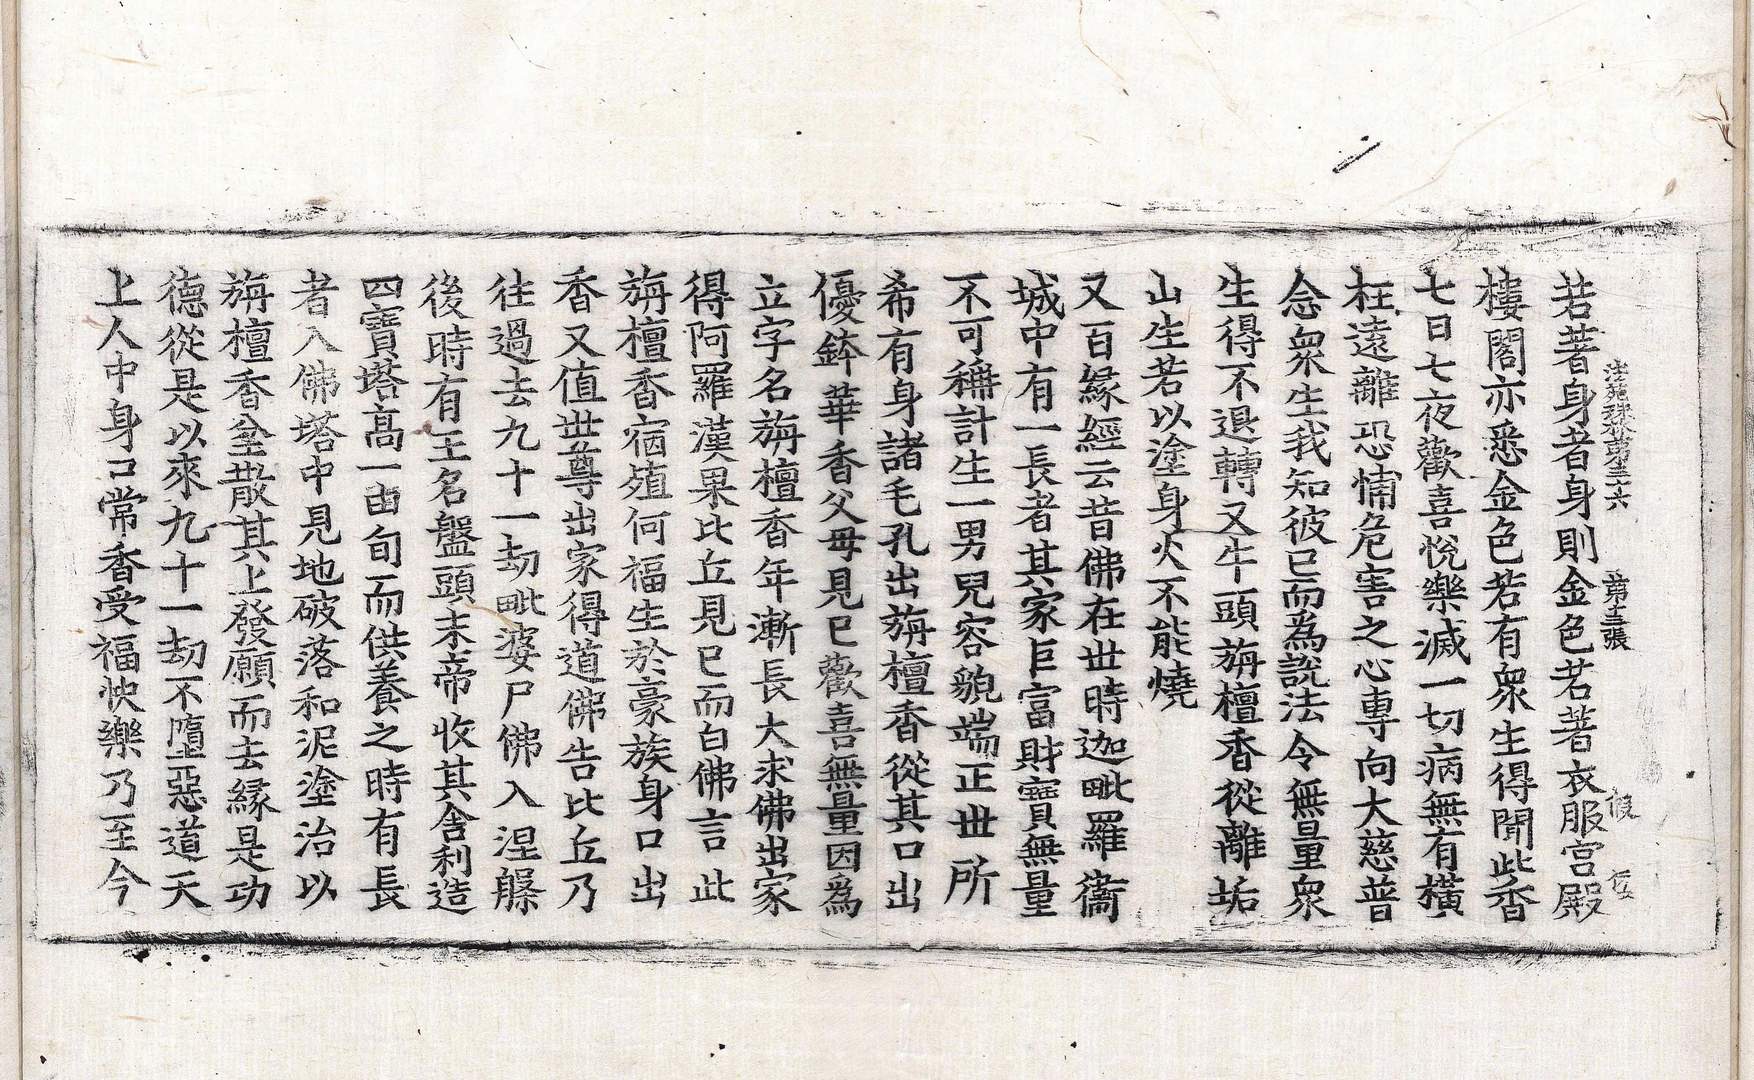 法苑珠林第三十六 第三張 假 伝
若著身者身則金色若著衣服宮殿
樓閣亦悉金色若有衆生得聞此香
七日七夜歡喜悅樂滅一切病無有橫
枉遠離恐怖危害之心專向大慈普
念衆生我知彼已而為說法令無量衆
生得不退轉又牛頭旃檀香從離垢
山生若以塗身火不能燒
又百緣經云昔佛在世時迦毗羅衞
城中有一長者其家巨富財寶無量
不可稱計生一男兒容貌端正世所
希有身諸毛孔出旃檀香從其口出
優鉢華香父母見已歡喜無量因為
立字名旃檀香年漸長大求佛出家
得阿羅漢果比丘見已而白佛言此
旃檀香宿殖何福生於豪族身口出
香又值世尊出家得道佛告比丘乃
往過去九十一劫毗婆尸佛入涅槃
後時有王名盤頭末帝收其舍利造
四寶塔高一由旬而供養之時有長
者入佛塔中見地破落和泥塗治以
旃檀香坌散其上發願而去緣是功
德從是以來九十一劫不墮惡道天
上人中身口常香受福快樂乃至今